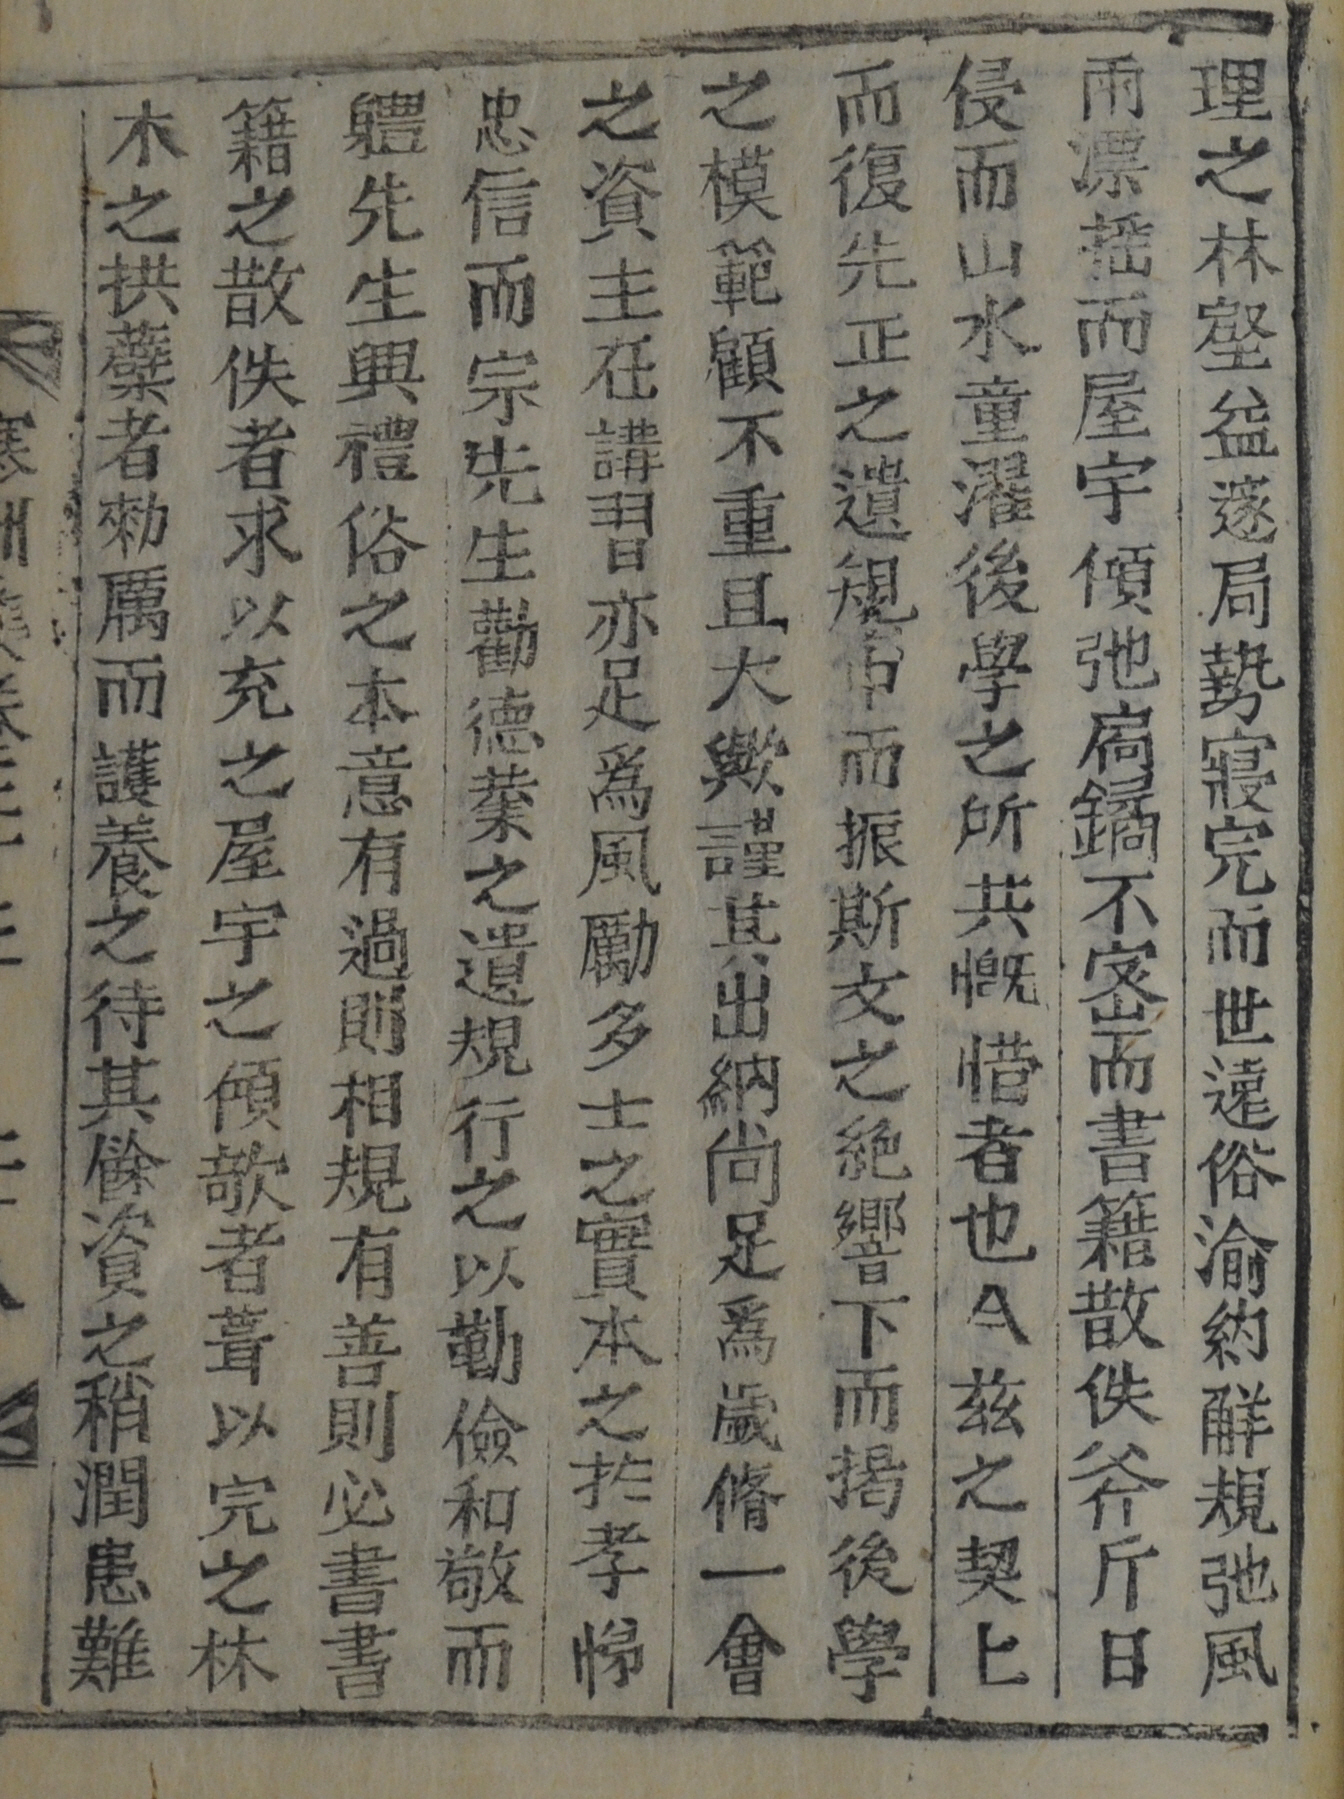 理之林壑益邃局勢寢完而世遠俗渝約觧規弛風
雨漂搖而屋宇傾弛扃鐍不密而書籍散佚斧斤日
侵而山水童濯後學之所共慨惜者也今玆之契上
而復先正之遺規中而振斯文之絶響下而揭後學
之模範顧不重且大歟謹其出納尚足爲歲脩一會
之資主在講習亦足爲風勵多士之實本之於孝悌
忠信而宗先生勸德業之遺規行之以勤儉和敬而
軆先生興禮俗之本意有過則相規有善則必書書
籍之散佚者求以充之屋宇之傾欹者葺以完之林
木之拱蘖者勑厲而護養之待其餘資之稍潤患難
寒洲